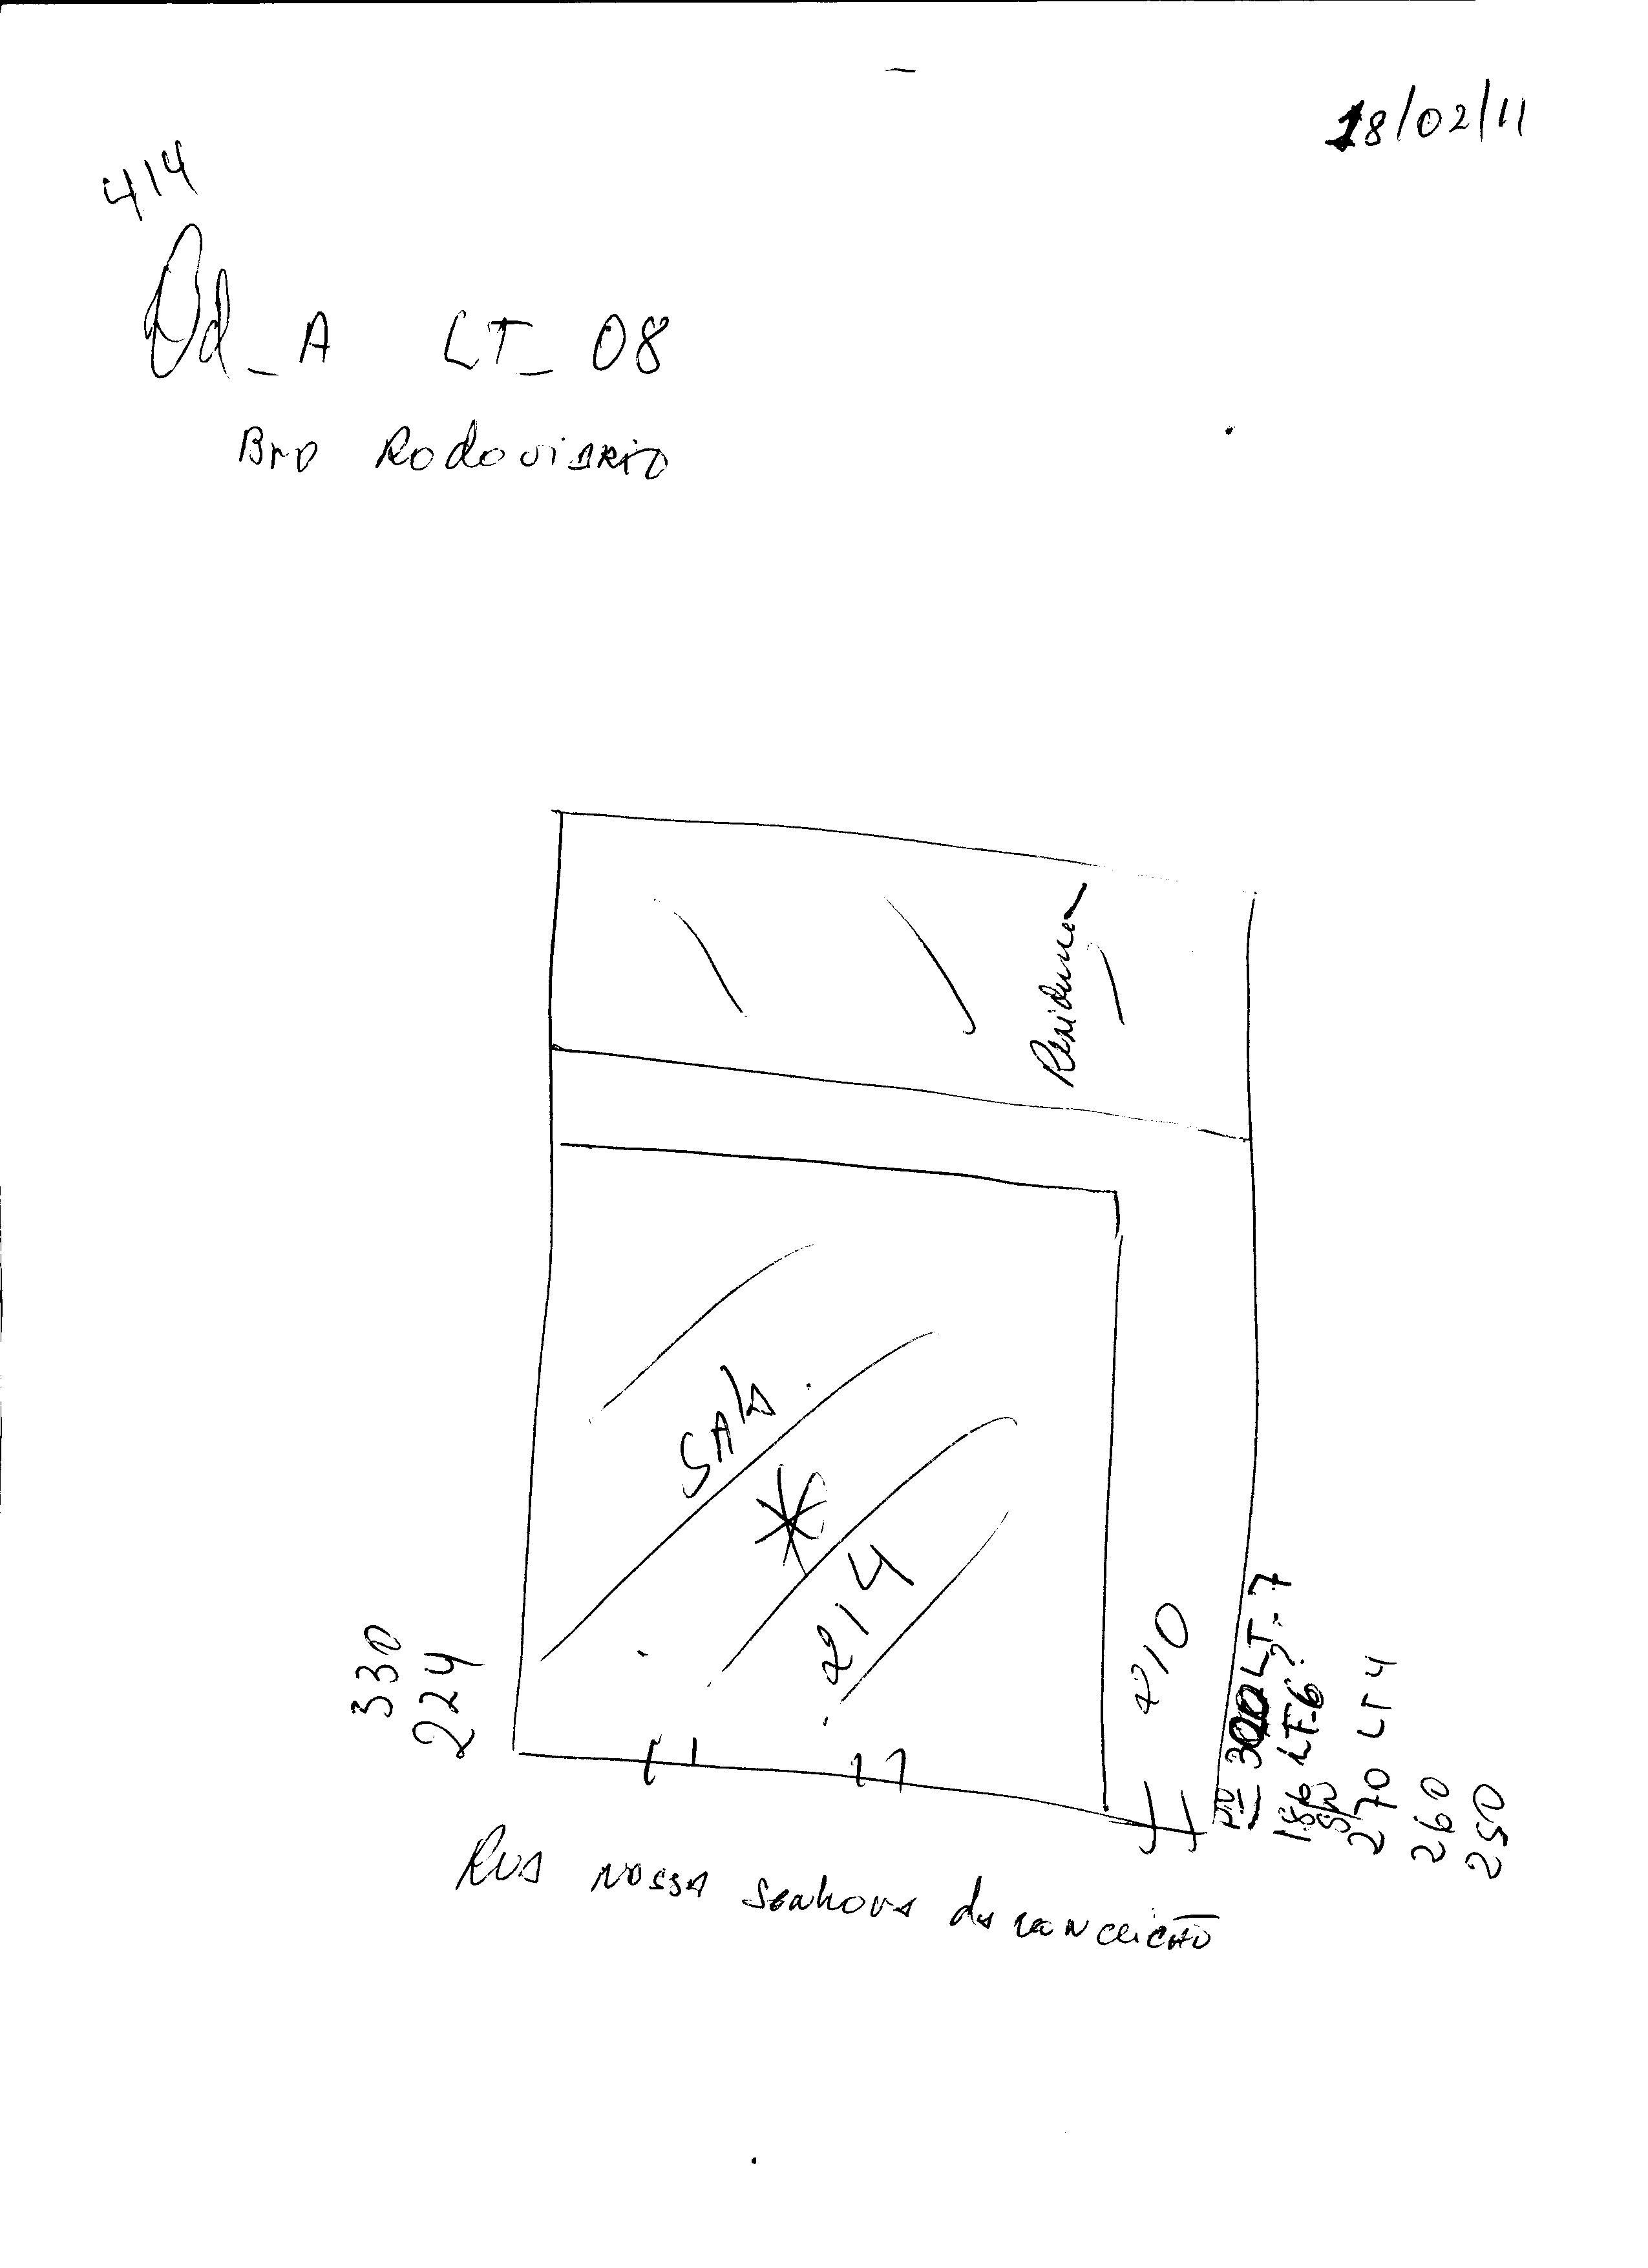 18/02/11
414
Qd_A LT_08
Bro Rodoviario
Residencia
Sala
*
214
210
330
224
300 LT-7
186 LT-6?
270 LT4
260
250
Rua Nossa Senhora da Conceição